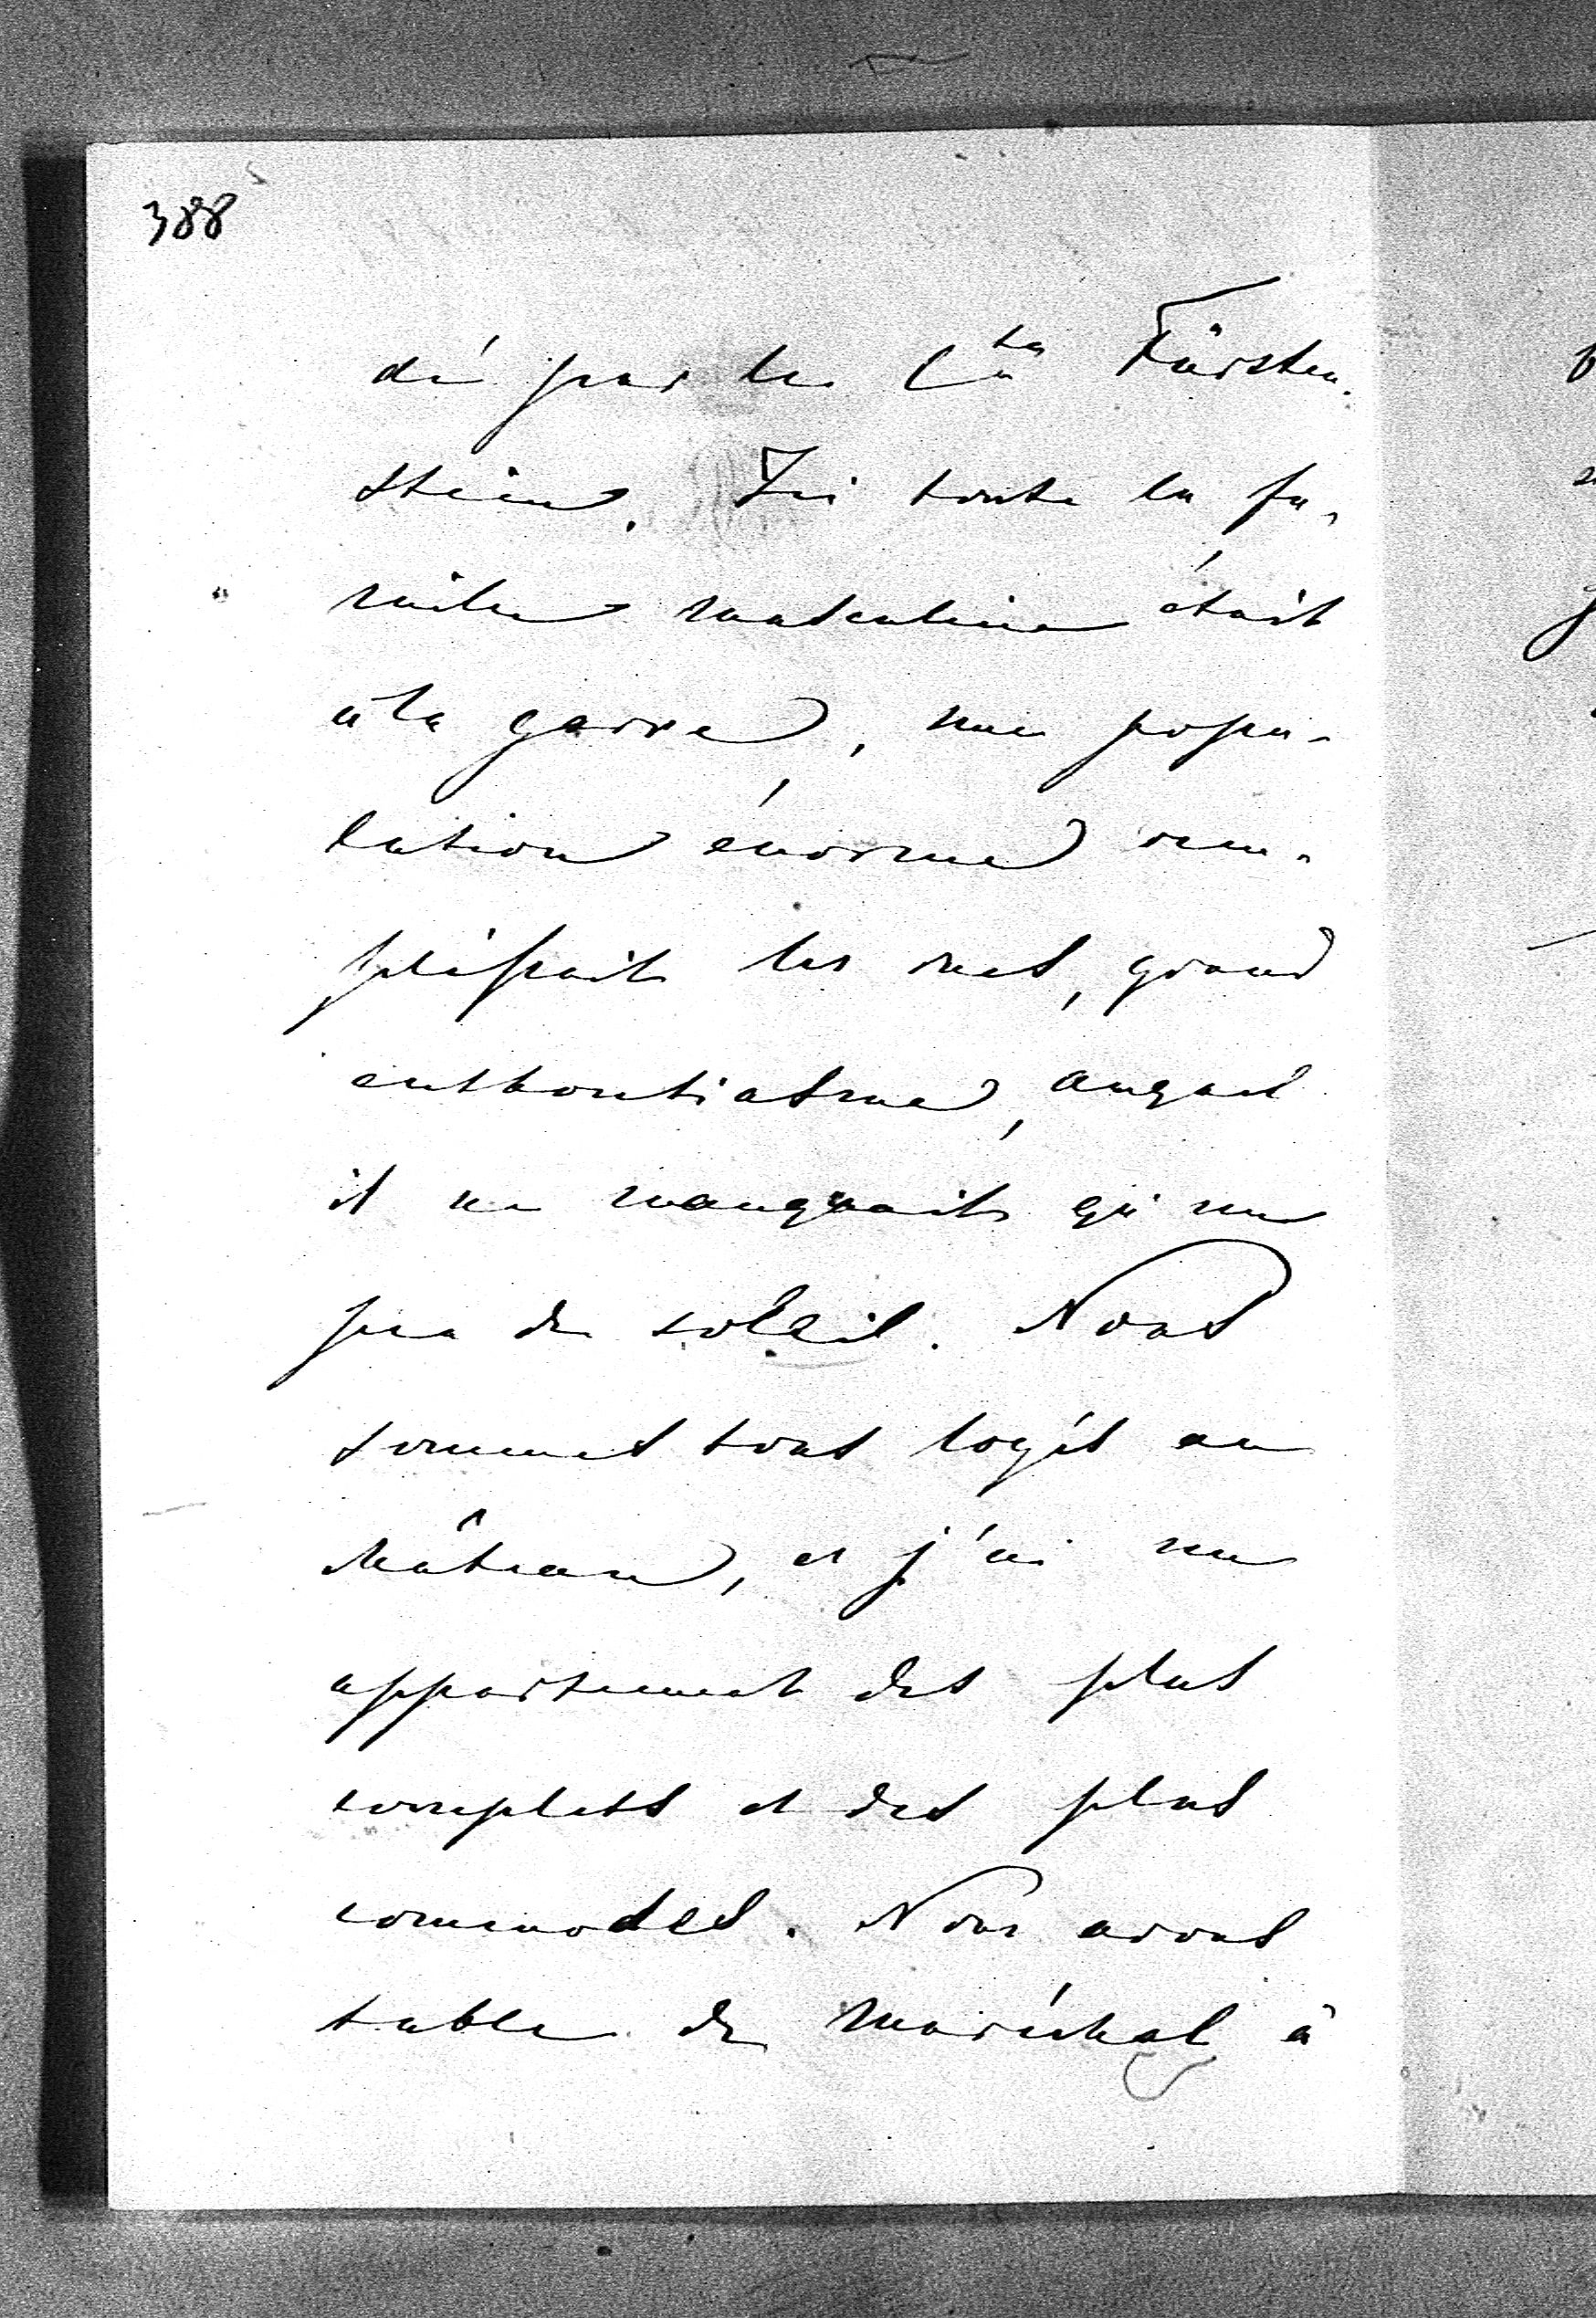 388
dé par le Cte Fürsten-
stein. Ici toute la fa-
mille masculine était
à la garre, une popu-
lation énorme rem-
plissait les rues, grand
enthousiasme, auquel
il ne manquait qu'un
peu de soleil. Nous
sommes tous logés au
château, et j'ai un
appartement des plus
complets et des plus
commodes. Nous avons
table de maréchal à